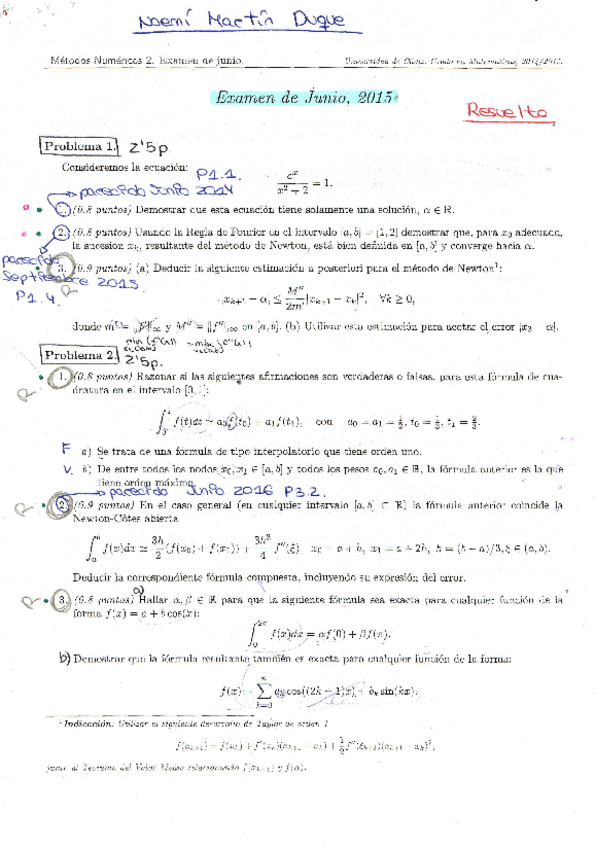 Noemí Martín Duque
Métodos Numéricos 2. Examen de junio. Universidad de Cádiz. Grado en Matemáticas, 2014/2015.
Examen de Junio, 2015
Resuelto
Problema 1. 2'5p
Consideremos la ecuación: P1.1.
e^x / (x^2 + 2) = 1.
parecido Junio 2014
1. (0.8 puntos) Demostrar que esta ecuación tiene solamente una solución, α ∈ ℝ.
2. (0.8 puntos) Usando la Regla de Fourier en el intervalo [a, b] = [1, 2] demostrar que, para x0 adecuado,
la sucesión xk, resultante del método de Newton, está bien definida en [a, b] y converge hacia α.
parecido
Septiembre 2015
P1.4.
3. (0.9 puntos) (a) Deducir la siguiente estimación a posteriori para el método de Newton¹:
|x_{k+1} − α| ≤ M''/2m' |x_{k+1} − x_k|², ∀k ≥ 0,
donde m' = y M'' = ‖f''‖∞ en [a, b]. (b) Utilizar esta estimación para acotar el error |x3 − α|.
Problema 2. 2'5p.
1. (0.8 puntos) Razonar si las siguientes afirmaciones son verdaderas o falsas, para esta fórmula de cua-
dratura en el intervalo [0, 1]:
∫ f(t)dt ≈ a0f(t0) + a1f(t1), con a0 = a1 = 1/2, t0 = 1/3, t1 = 2/3.
F a) Se trata de una fórmula de tipo interpolatorio que tiene orden uno.
V. b) De entre todos los nodos x0, x1 ∈ [a, b] y todos los pesos a0, a1 ∈ ℝ, la fórmula anterior es la que
tiene orden máximo.
parecido Junio 2016 P3.2.
2. (0.9 puntos) En el caso general (en cualquier intervalo [a, b] ⊂ ℝ) la fórmula anterior coincide la
Newton-Côtes abierta
∫_a^b f(x)dx ≃ 3h/2 (f(x0) + f(x1)) + 3h³/4 f''(ξ) x0 = a + h, x1 = a + 2h, h = (b − a)/3, ξ ∈ (a, b).
Deducir la correspondiente fórmula compuesta, incluyendo su expresión del error.
a)
3. (0.8 puntos) Hallar α, β ∈ ℝ para que la siguiente fórmula sea exacta para cualquier función de la
forma f(x) = a + b cos(x):
∫_0^{2π} f(x)dx = αf(0) + βf(π).
b) Demostrar que la fórmula resultante también es exacta para cualquier función de la forma:
f(x) = ∑_{k=0}^n a_k cos((2k + 1)x) + b_k sin(kx).
¹ Indicación: Utilizar el siguiente desarrollo de Taylor de orden 1
f(x_{k+1}) = f(x_k) + f'(x_k)(x_{k+1} − x_k) + 1/2 f''(ξ_{k+1})(x_{k+1} − x_k)²,
junto al Teorema del Valor Medio relacionando f(x_{k+1}) y f(α).